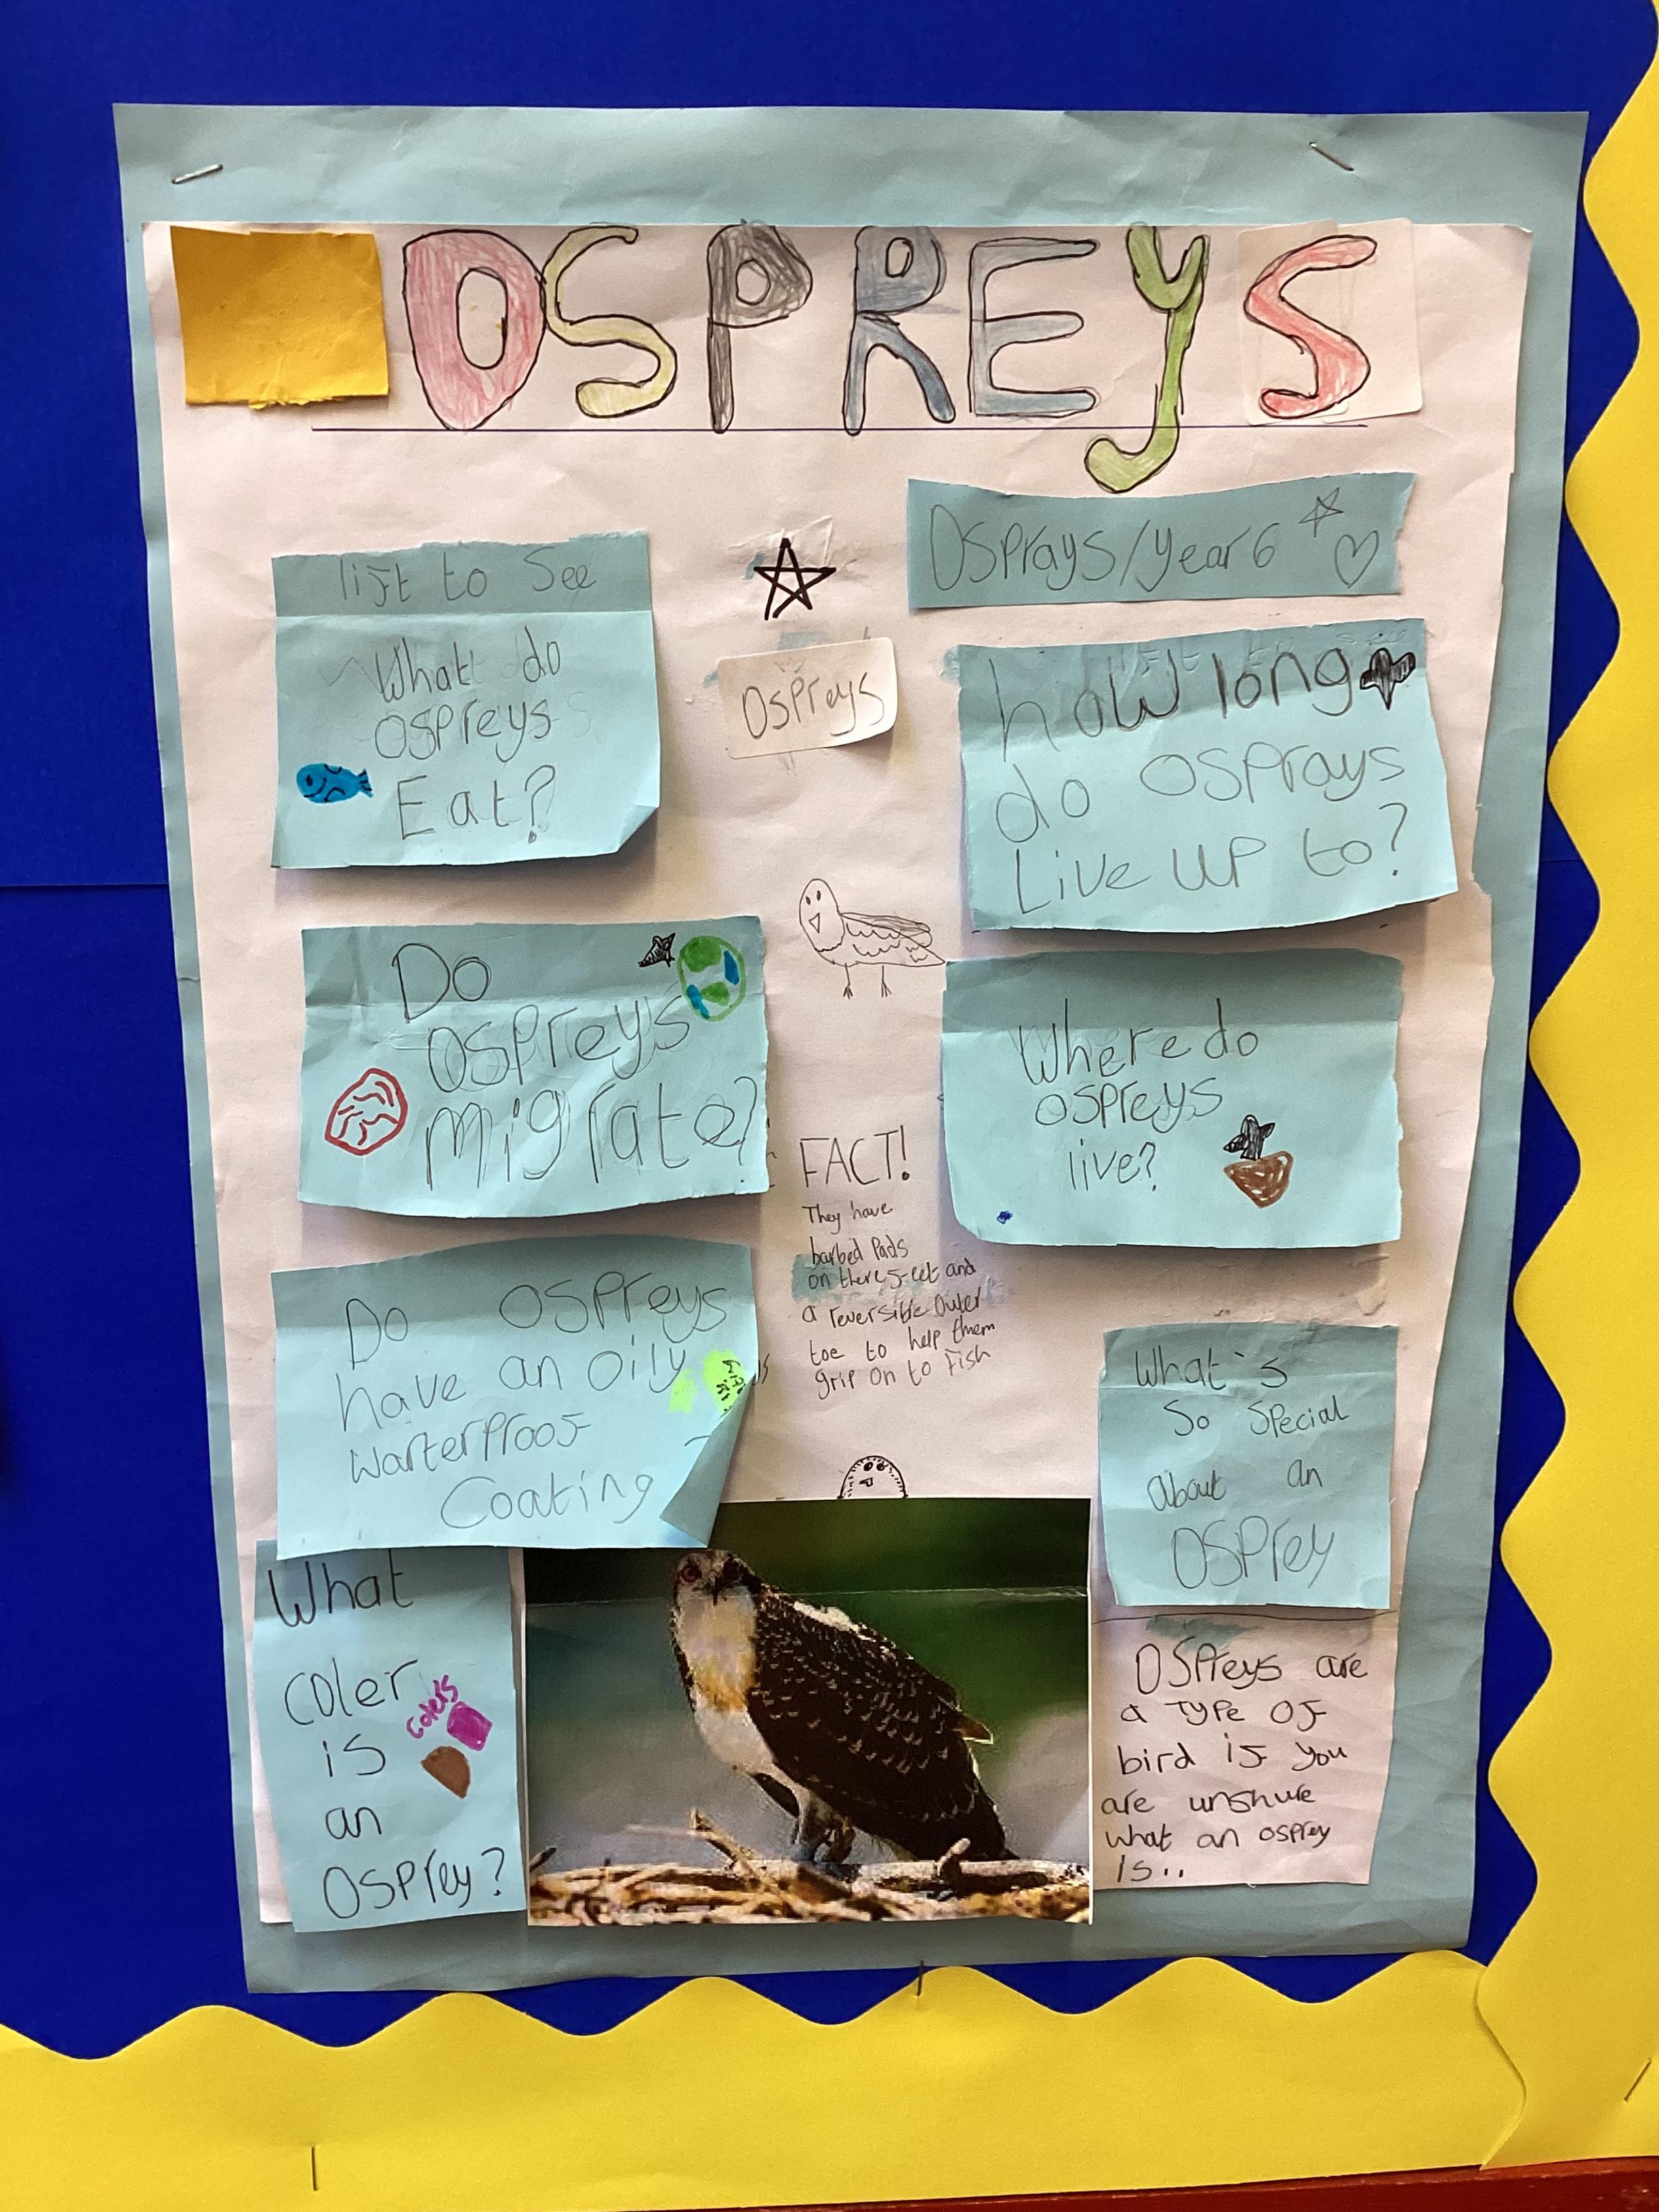 OSPREYS
Osprays/year 6
lift to See
What do
ospreys
Eat?
Ospreys
how long
do osprays
Live up to?
Do
ospreys
migrate?
Where do
ospreys
live?
FACT!
They have
barbed Pads
on there feet and
a reversible outer
toe to help them
grip on to fish
Do ospreys
have an oily
warterproof
Coating
What's
So special
about an
OSPrey
What
coler
is
an
Osprey?
colers
OSPreys are
a type of
bird if you
are unshure
what an osprey
is..